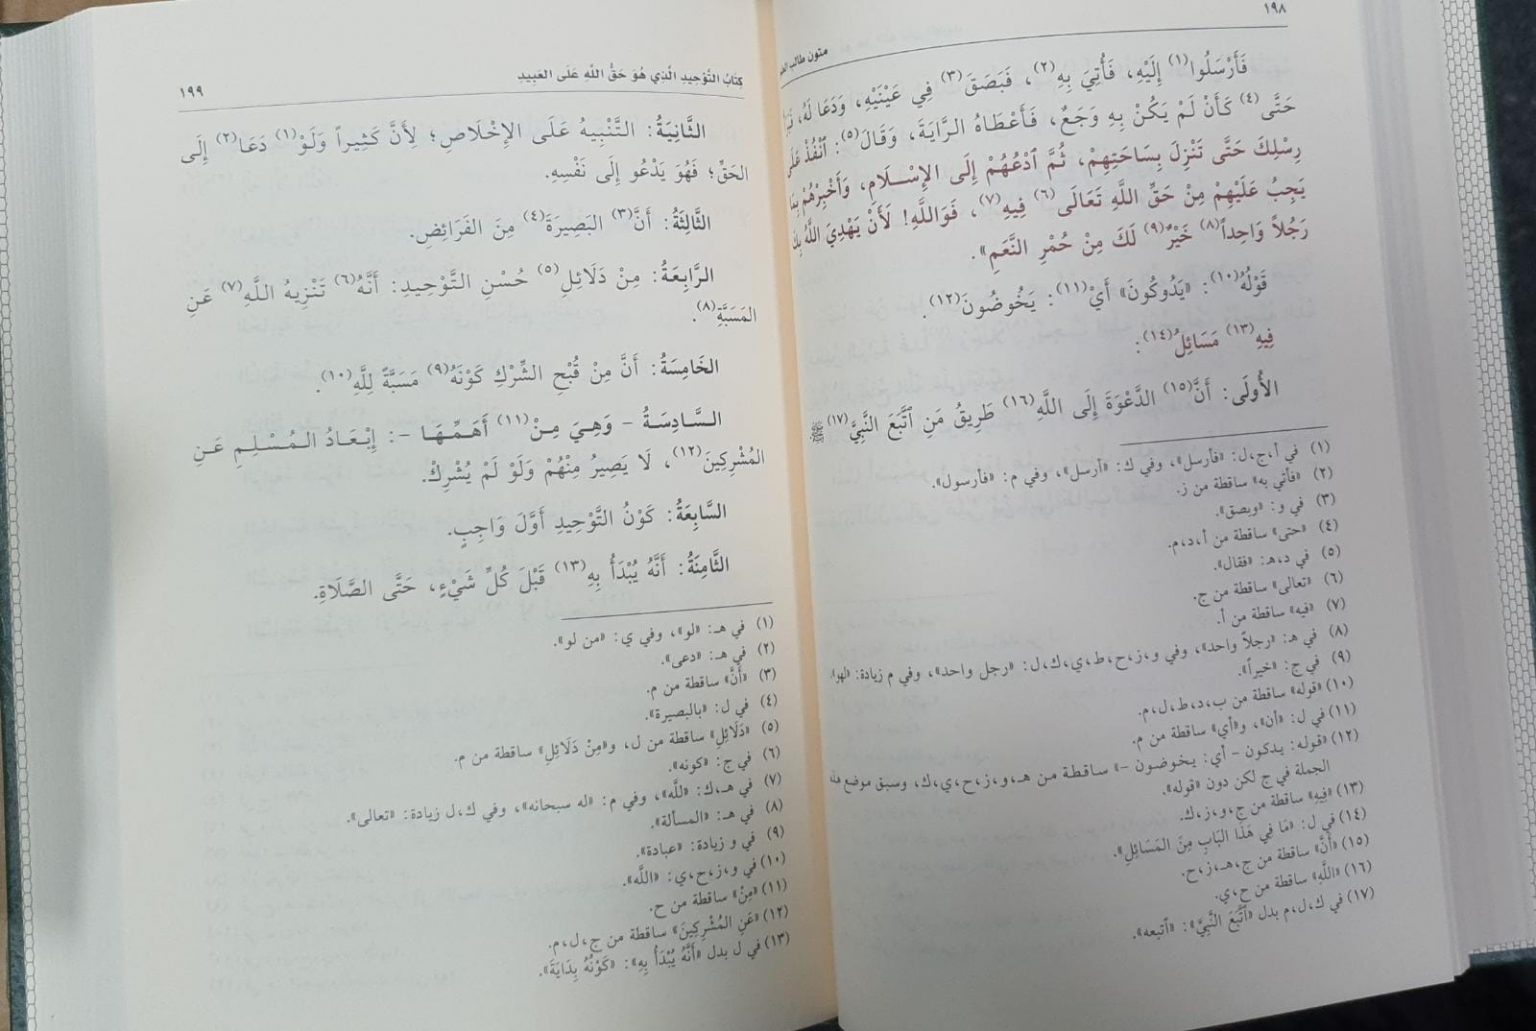 ١٩٨
متون طالب العلم
فَأَرْسَلُوا(١) إِلَيْهِ، فَأُتِيَ بِهِ(٢)، فَبَصَقَ(٣) فِي عَيْنَيْهِ، وَدَعَا لَهُ،
حَتَّى(٤) كَأَنْ لَمْ يَكُنْ بِهِ وَجَعٌ، فَأَعْطَاهُ الرَّايَةَ، وَقَالَ(٥): ٱنْفُذْ عَلَى
رِسْلِكَ حَتَّى تَنْزِلَ بِسَاحَتِهِمْ، ثُمَّ ٱدْعُهُمْ إِلَى الإِسْلَامِ، وَأَخْبِرْهُمْ بِمَا
يَجِبُ عَلَيْهِمْ مِنْ حَقِّ اللَّهِ تَعَالَى(٦) فِيهِ(٧)، فَوَاللَّهِ! لَأَنْ يَهْدِيَ اللَّهُ بِكَ
رَجُلاً وَاحِداً(٨) خَيْرٌ(٩) لَكَ مِنْ حُمْرِ النَّعَمِ».
قَوْلُهُ(١٠): «يَدُوكُونَ» أَيْ(١١): يَخُوضُونَ(١٢).
فِيهِ(١٣) مَسَائِلُ(١٤):
الأُولَى: أَنَّ(١٥) الدَّعْوَةَ إِلَى اللَّهِ(١٦) طَرِيقُ مَنِ ٱتَّبَعَ النَّبِيَّ(١٧) ﷺ.
(١) في أ،ج،ل: «فأرسل»، وفي ك: «أرسل»، وفي م: «فأرسول».
(٢) «فأتي به» ساقطة من ز.
(٣) في و: «وبصق».
(٤) «حتى» ساقطة من أ،د،م.
(٥) في د،هـ: «فقال».
(٦) «تعالى» ساقطة من ج.
(٧) «فيه» ساقطة من أ.
(٨) في هـ: «رجلاً واحد»، وفي و،ز،ح،ط،ي،ك،ل: «رجل واحد»، وفي م زيادة: «لهو».
(٩) في ج: «خيراً».
(١٠) «قوله» ساقطة من ب،د،ط،ل،م.
(١١) في ل: «أن»، و«أي» ساقطة من م.
(١٢) «قوله: يدكون - أي: يخوضون -» ساقطة من هـ،و،ز،ح،ي،ك، وسبق موضع هذه
الجملة في ج لكن دون «قوله».
(١٣) «فِيهِ» ساقطة من ج،و،ز،ك.
(١٤) في ل: «مَا فِي هَذَا البَابِ مِنَ المَسَائِلِ».
(١٥) «أَنَّ» ساقطة من ج،هـ،ز،ح.
(١٦) «اللَّهِ» ساقطة من ح،ي.
(١٧) في ك،ل،م بدل «ٱتَّبَعَ النَّبِيَّ»: «ٱتبعه».
كِتَابُ التَّوْحِيدِ الَّذِي هُوَ حَقُّ اللَّهِ عَلَى العَبِيدِ
١٩٩
الثَّانِيَةُ: التَّنْبِيهُ عَلَى الإِخْلَاصِ؛ لِأَنَّ كَثِيراً وَلَوْ(١) دَعَا(٢) إِلَى
الحَقِّ؛ فَهُوَ يَدْعُو إِلَى نَفْسِهِ.
الثَّالِثَةُ: أَنَّ(٣) البَصِيرَةَ(٤) مِنَ الفَرَائِضِ.
الرَّابِعَةُ: مِنْ دَلَائِلِ(٥) حُسْنِ التَّوْحِيدِ: أَنَّهُ(٦) تَنْزِيهُ اللَّهِ(٧) عَنِ
المَسَبَّةِ(٨).
الخَامِسَةُ: أَنَّ مِنْ قُبْحِ الشِّرْكِ كَوْنَهُ(٩) مَسَبَّةً لِلَّهِ(١٠).
السَّادِسَةُ - وَهِيَ مِنْ(١١) أَهَمِّهَا -: إِبْعَادُ المُسْلِمِ عَنِ
المُشْرِكِينَ(١٢)، لَا يَصِيرُ مِنْهُمْ وَلَوْ لَمْ يُشْرِكْ.
السَّابِعَةُ: كَوْنُ التَّوْحِيدِ أَوَّلَ وَاجِبٍ.
الثَّامِنَةُ: أَنَّهُ يُبْدَأُ بِهِ(١٣) قَبْلَ كُلِّ شَيْءٍ، حَتَّى الصَّلَاةِ.
(١) في هـ: «لو»، وفي ي: «من لو».
(٢) في هـ: «دعى».
(٣) «أَنَّ» ساقطة من م.
(٤) في ل: «بالبصيرة».
(٥) «دَلَائِلِ» ساقطة من ل، و«مِنْ دَلَائِلِ» ساقطة من م.
(٦) في ج: «كونه».
(٧) في هـ،ك: «للَّه»، وفي م: «له سبحانه»، وفي ك،ل زيادة: «تعالى».
(٨) في هـ: «المسألة».
(٩) في و زيادة: «عبادة».
(١٠) في و،ز،ح،ي: «اللَّه».
(١١) «مِنْ» ساقطة من ح.
(١٢) «عَنِ المُشْرِكِينَ» ساقطة من ج،ل،م.
(١٣) في ل بدل «أَنَّهُ يُبْدَأُ بِهِ»: «كَوْنُهُ بِدَايَةَ».